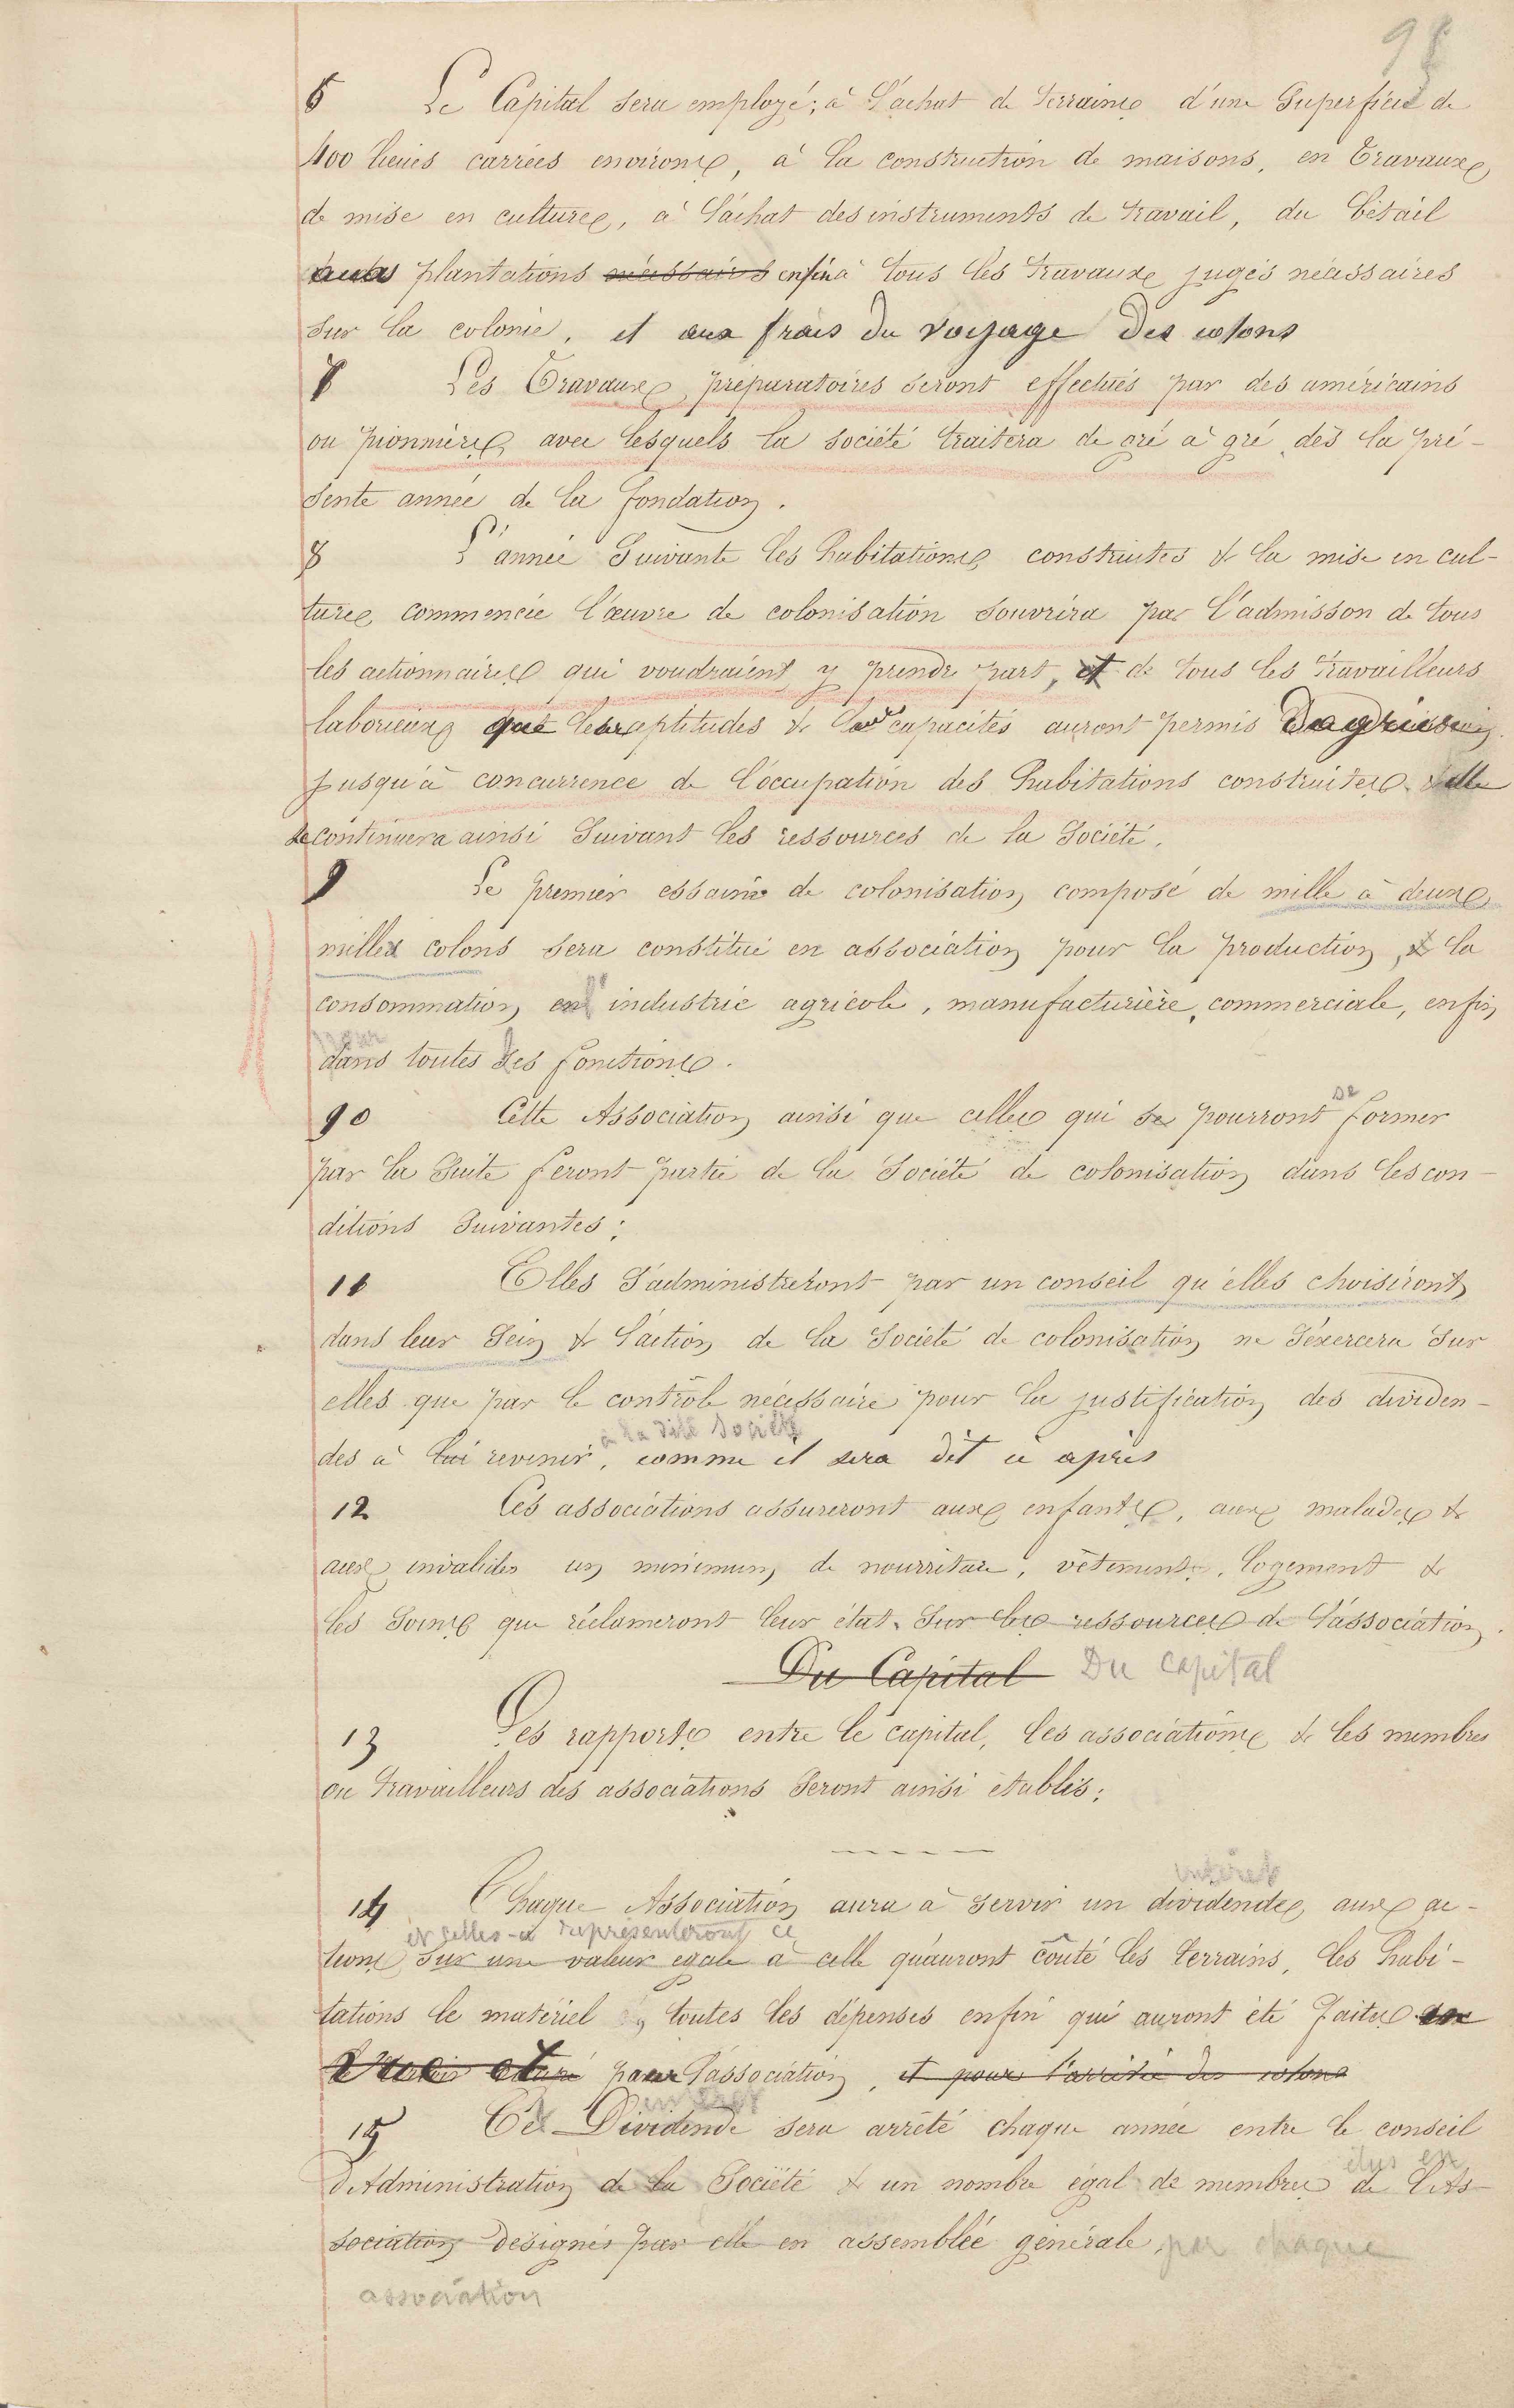 98
6 Le Capital sera employé; à l'achat de terrains d'une Superficie de
400 lieues carrées environs, à la construction de maisons, en Travaux
de mise en cultures, à l'achat des instruments de travail, du bétail
aux plantations nécessaires enfin à tous les travaux jugés nécessaires
sur la colonie, et aux frais du voyage des colons
7 Les Travaux préparatoires seront effectués par des américains
ou pionniers avec lesquels la société traitera de gré à gré, dès la pré-
sente année de la fondation.
8 L'année Suivante les habitations construites & la mise en cul-
tures commencée l'œuvre de colonisation souvrira par l'admisson de tous
les actionnaires qui voudraient y prendre part, et de tous les travailleurs
laborieux que leurs aptitudes & leurs capacités auront permis
jusqu'à concurrence de l'occupation des habitations construites. elle
se continuera ainsi Suivant les ressources de la Société.
9 Le premier essaim de colonisation composé de mille à deux
mille colons sera constitué en association pour la production, & la
consommation, en industrie agricole, manufacturière, commerciale, enfin
pour
dans toutes les fonctions.
10 Cette Association ainsi que celles qui se pourront se former
par la Suite feront partie de la Société de colonisation dans les con-
ditions Suivantes:
11 Elles S'administreront par un conseil qu'elles choisiront
dans leur Sein & l'action de la Société de colonisation ne S'exercera Sur
elles que par le contrôle nécessaire pour la justification des dividen-
à la dite Société
des à lui revenir, comme il sera dit ci après
12 Ces associations assureront aux enfants, aux malades &
aux invalides un minimum de nourriture, vêtements, logement &
les Soins que réclameront leur état. Sur les ressources de l'association.
Du Capital Du Capital
13 Les rapports entre le capital, les associations & les membres
ou travailleurs des associations Seront ainsi établis:
intérêt
14 Chaque Association aura à Servir un dividendes aux ac-
et celles-ci représenteront ce
tions Sur une valeur égale à celle qu'auront coûté les terrains, les habi-
tations le matériel toutes les dépenses enfin qui auront été faites
pour l'association, et pour l'arrivée des colons
intérêt
15 Cet Dividende sera arrêté chaque année entre le conseil
élus en
d'Administration de la Société & un nombre égal de membres de l'As-
sociation désignés par elle en assemblée générale, par chaque
association